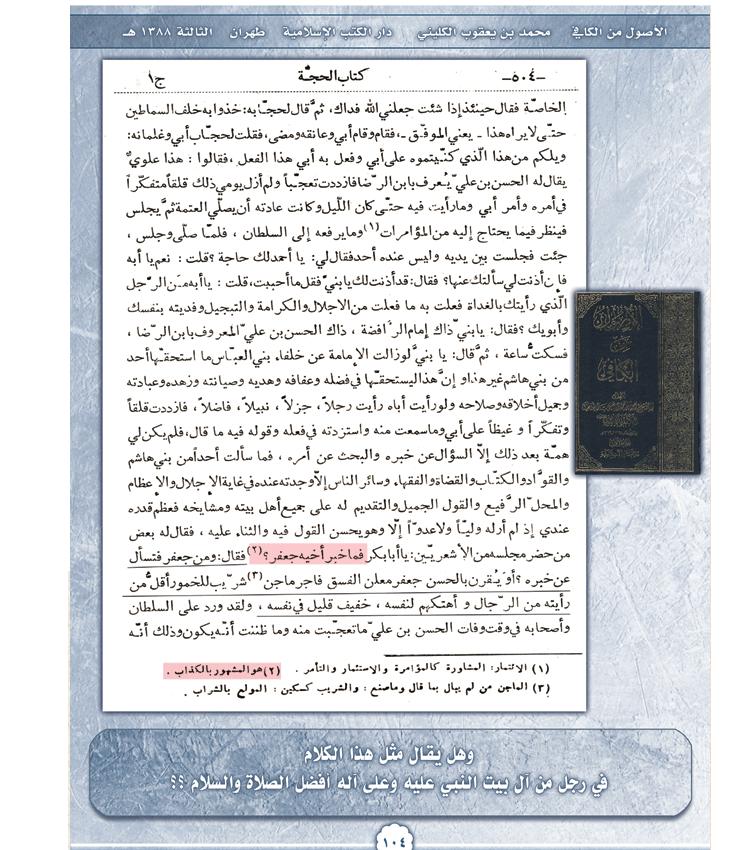 الأصول من الكافي محمد بن يعقوب الكليني دار الكتب الإسلامية طهران الثالثة ١٣٨٨ هـ
-٥٠٤- كتاب الحجّة ج١
الخاصّة فقال حينئذ إذا شئت جعلني الله فداك، ثمَّ قال لحجّابه: خذوا به خلف السماطين
حتّى لا يراه هذا - يعني الموفّق -، فقام وقام أبي وعانقه ومضى، فقلت لحجّاب أبي وغلمانه:
ويلكم من هذا الّذي كنّيتموه على أبي وفعل به أبي هذا الفعل، فقالوا: هذا علويٌّ
يقال له الحسن بن عليّ يُعرف بابن الرّضا فازددت تعجّباً ولم أزل يومي ذلك قلقاً متفكّراً
في أمره وأمر أبي وما رأيت فيه حتّى كان اللّيل وكانت عادته أن يصلّي العتمة ثمَّ يجلس
فينظر فيما يحتاج إليه من المؤامرات(١) وما يرفعه إلى السلطان، فلمّا صلّى وجلس،
جئت فجلست بين يديه وليس عنده أحد فقال لي: يا أحمد لك حاجة؟ قلت: نعم يا أبه
فإن أذنت لي سألتك عنها؟ فقال: قد أذنت لك يا بنيّ فقل ما أحببت، قلت: يا أبه من الرّجل
الّذي رأيتك بالغداة فعلت به ما فعلت من الاجلال والكرامة والتبجيل وفديته بنفسك
وأبويك؟ فقال: يا بنيّ ذاك إمام الرّافضة، ذاك الحسن بن عليّ المعروف بابن الرّضا،
فسكت ساعة، ثمَّ قال: يا بنيّ لو زالت الإمامة عن خلفاء بني العبّاس ما استحقّها أحد
من بني هاشم غير هذا وإنَّ هذا ليستحقّها في فضله وعفافه وهديه وصيانته وزهده وعبادته
وجميل أخلاقه وصلاحه ولو رأيت أباه رأيت رجلاً، جزلاً، نبيلاً، فاضلاً، فازددت قلقاً
وتفكّراً وغيظاً على أبي وما سمعت منه واستزدته في فعله وقوله فيه ما قال، فلم يكن لي
همّة بعد ذلك إلّا السؤال عن خبره والبحث عن أمره، فما سألت أحداً من بني هاشم
والقوّاد والكتّاب والقضاة والفقهاء وسائر الناس إلّا وجدته عنده في غاية الإجلال والإعظام
والمحلّ الرّفيع والقول الجميل والتقديم له على جميع أهل بيته ومشايخه فعظم قدره
عندي إذ لم أر له وليّاً ولا عدوّاً إلّا وهو يحسن القول فيه والثناء عليه، فقال له بعض
من حضر مجلسه من الأشعريّين: يا أبا بكر فما خبر أخيه جعفر؟(٢) فقال: ومن جعفر فتسأل
عن خبره؟ أو يُقرن بالحسن جعفر معلن الفسق فاجر ماجن(٣) شرّيب للخمور أقلُّ من
رأيته من الرّجال وأهتكهم لنفسه، خفيف قليل في نفسه، ولقد ورد على السلطان
وأصحابه في وقت وفات الحسن بن عليّ ما تعجّبت منه وما ظننت أنّه يكون وذلك أنّه
(١) الائتمار: المشاورة كالمؤامرة والاستئمار والتأمر. (٢) هو المشهور بالكذاب.
(٣) الماجن من لم يبال بما قال وما صنع: والشريب كسكين: المولع بالشراب.
الأصول
من
الكافي
وهل يقال مثل هذا الكلام
في رجل من آل بيت النبي عليه وعلى آله أفضل الصلاة والسلام ؟؟
١٠٤